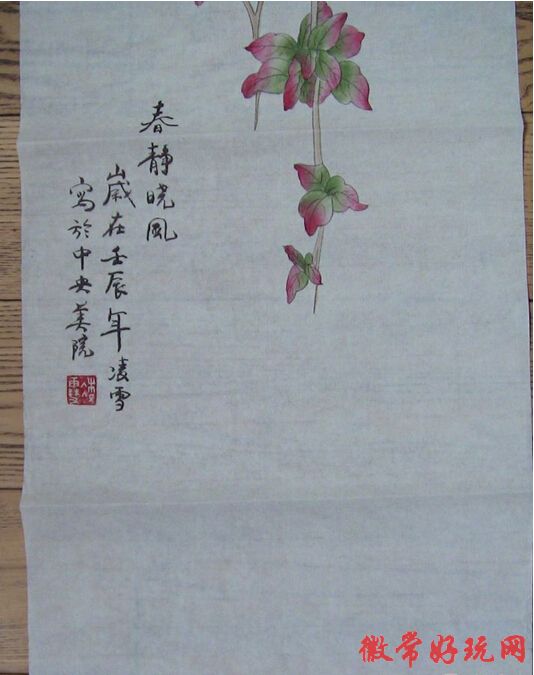 春静晓风
岁在壬辰年凌雪
寫於中央美院
徽常好玩网